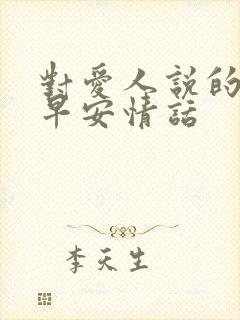 對愛人說的
早安情話
李天生